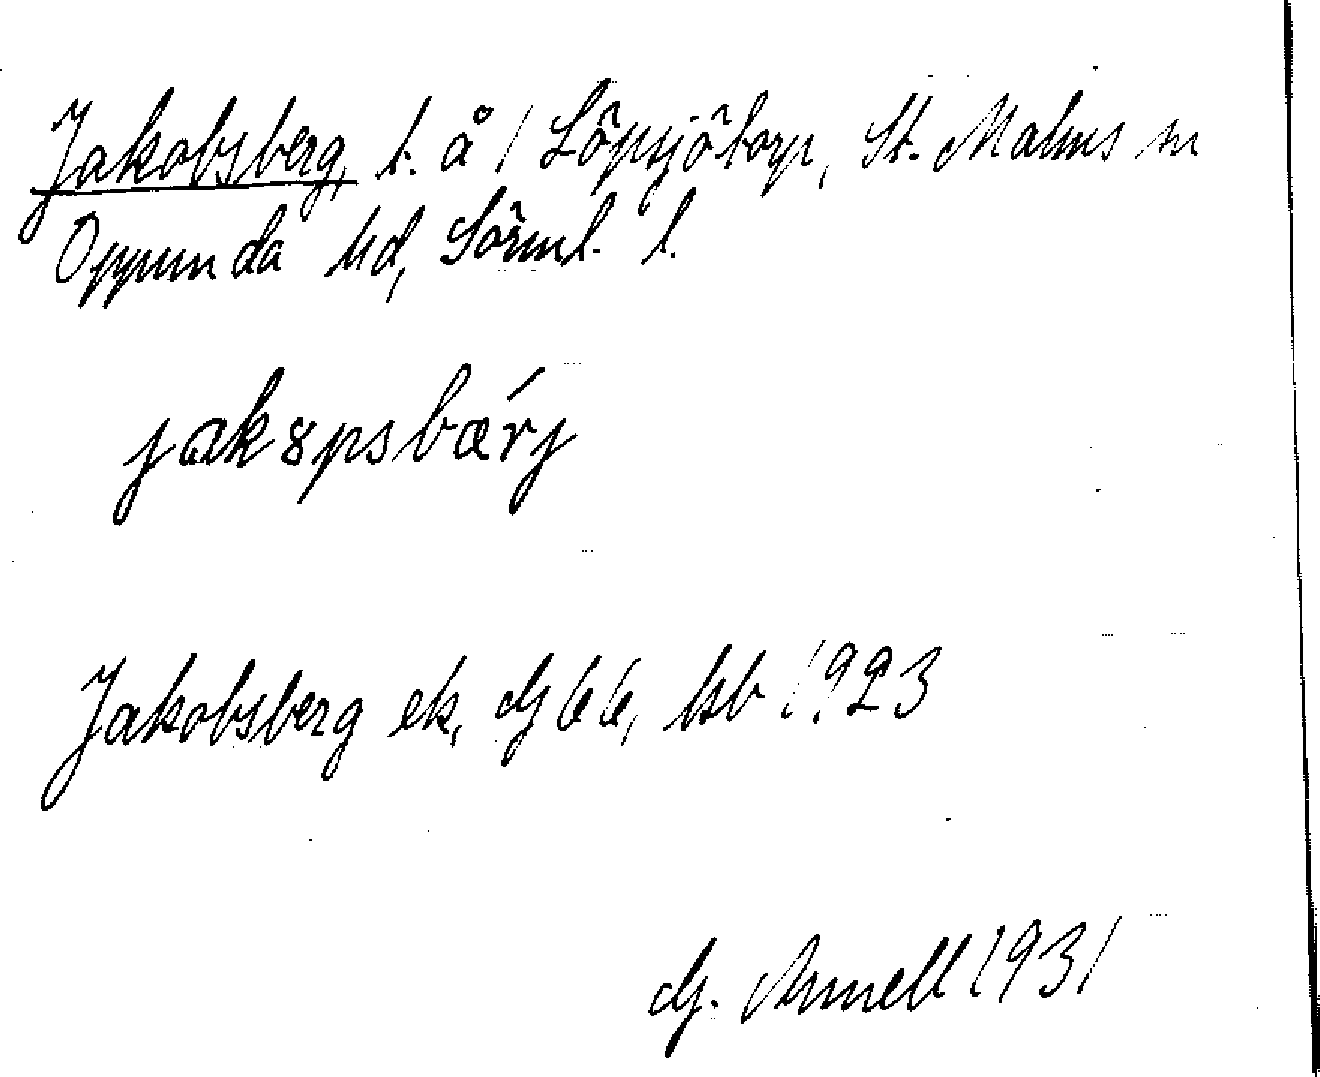 Jakobsberg, t. å 1 Löpsjötorp, St. Malms sn
Oppunda hd, Sörml. l.
jakɷpsbæ´rj
Jakobsberg ek, G 66, hsb 1923
G. Arnell 1931